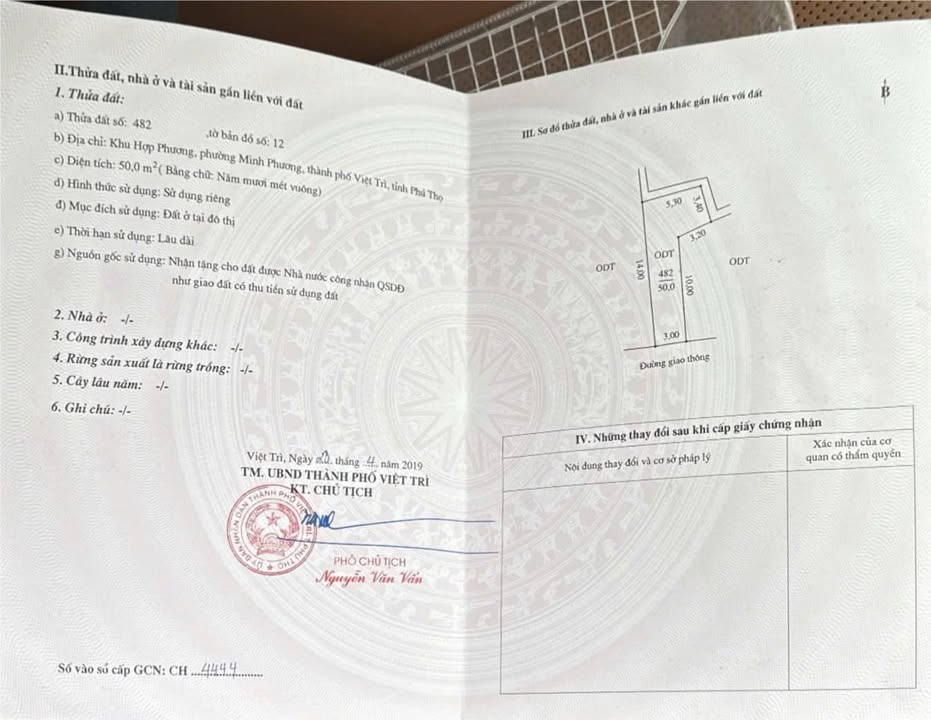 II.Thửa đất, nhà ở và tài sản gắn liền với đất
1. Thửa đất:
a) Thửa đất số: 482 ,tờ bản đồ số: 12
b) Địa chỉ: Khu Hợp Phương, phường Minh Phương, thành phố Việt Trì, tỉnh Phú Thọ
c) Diện tích: 50,0 m²( Bằng chữ: Năm mươi mét vuông)
d) Hình thức sử dụng: Sử dụng riêng
đ) Mục đích sử dụng: Đất ở tại đô thị
e) Thời hạn sử dụng: Lâu dài
g) Nguồn gốc sử dụng: Nhận tặng cho đất được Nhà nước công nhận QSDĐ
như giao đất có thu tiền sử dụng đất
2. Nhà ở: -/-
3. Công trình xây dựng khác: -/-
4. Rừng sản xuất là rừng trồng: -/-
5. Cây lâu năm: -/-
6. Ghi chú: -/-
Việt Trì, Ngày tháng 4 năm 2019
TM. UBND THÀNH PHỐ VIỆT TRÌ
KT. CHỦ TỊCH
ỦY BAN NHÂN DÂN THÀNH PHỐ VIỆT TRÌ PHÚ THỌ
PHÓ CHỦ TỊCH
Nguyễn Văn Vấn
Số vào sổ cấp GCN: CH 4444
III. Sơ đồ thửa đất, nhà ở và tài sản khác gắn liền với đất
B
5,30
3,40
3,20
ODT
ODT
ODT
14,00
482
50,0
10,00
3,00
Đường giao thông
IV. Những thay đổi sau khi cấp giấy chứng nhận
Nội dung thay đổi và cơ sở pháp lý
Xác nhận của cơ
quan có thẩm quyền